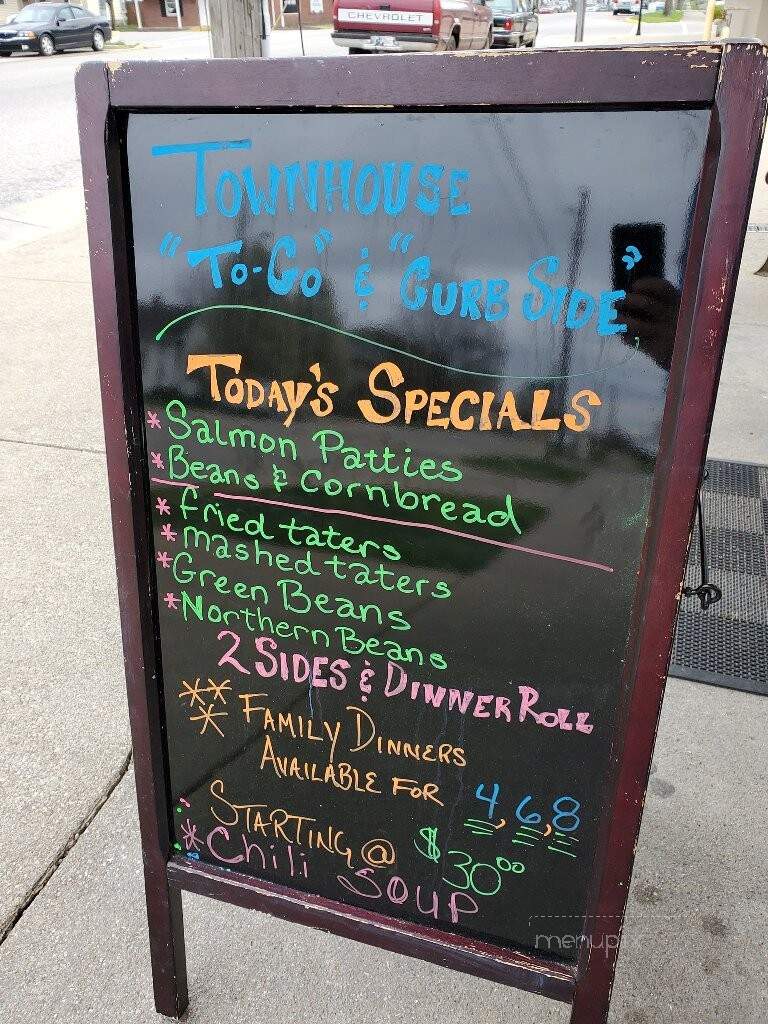 CHEVROLET
TOWNHOUSE
"TO-GO" & "CURB SIDE"
TODAY'S SPECIALS
*Salmon Patties
*Beans & cornbread
*fried taters
*mashed taters
*Green Beans
*Northern Beans
2 SIDES & DINNER ROLL
*** FAMILY DINNERS
AVAILABLE FOR 4, 6, 8
STARTING @ $30.00
*Chili SOUP
menupix